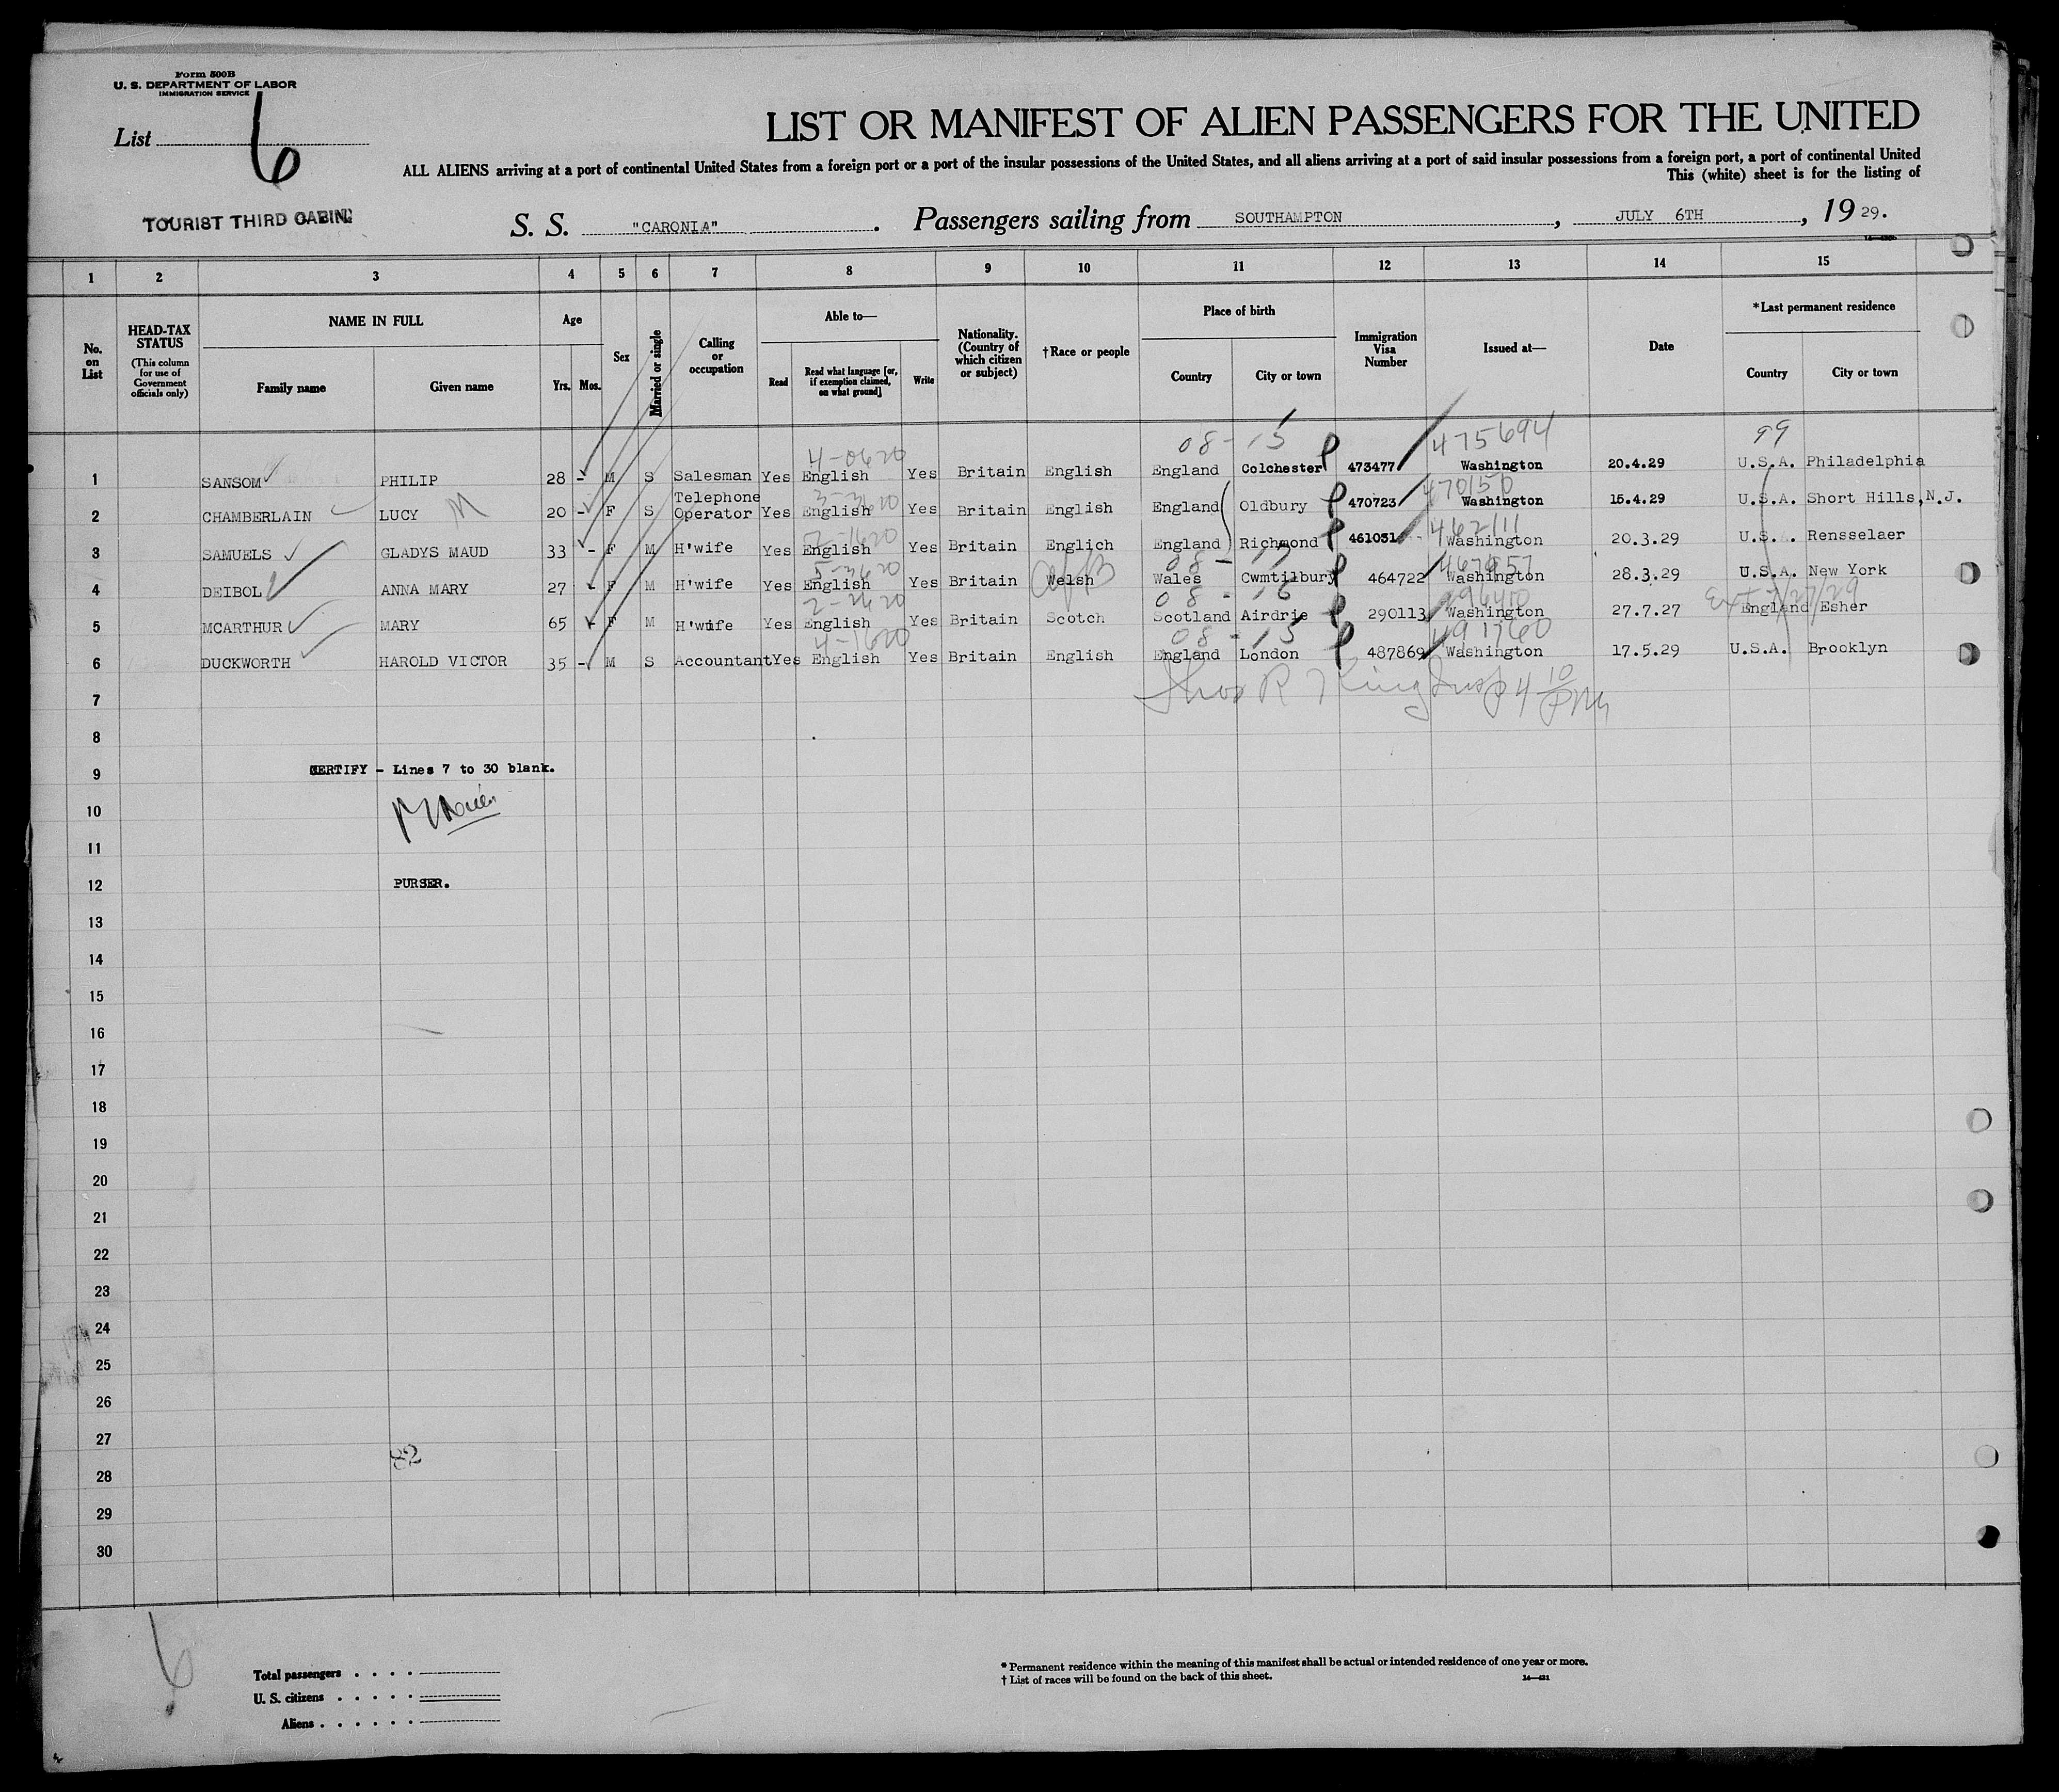 Form 500B
U. S. DEPARTMENT OF LABOR
IMMIGRATION SERVICE
List 6
LIST OR MANIFEST OF ALIEN PASSENGERS FOR THE UNITED
ALL ALIENS arriving at a port of continental United States from a foreign port or a port of the insular possessions of the United States, and all aliens arriving at a port of said insular possessions from a foreign port, a port of continental United
This (white) sheet is for the listing of
TOURIST THIRD CABIN.
S. S. "CARONIA". Passengers sailing from SOUTHAMPTON, JULY 6TH, 19 29.
1 2 3 4 5 6 7 8 9 10 11 12 13 14 15
No. on List
HEAD-TAX STATUS
(This column for use of Government officials only)
NAME IN FULL
Family name Given name
Age
Yrs. Mos.
Sex
Married or single
Calling or occupation
Able to—
Read Read what language [or, if exemption claimed, on what ground] Write
Nationality. (Country of which citizen or subject)
†Race or people
Place of birth
Country City or town
Immigration Visa Number
Issued at—
Date
*Last permanent residence
Country City or town
08-15 475694 99
4-0620
1 SANSOM PHILIP 28 - M S Salesman Yes English Yes Britain English England Colchester 473477 Washington 20.4.29 U.S.A. Philadelphia
470150
2 CHAMBERLAIN LUCY M 20 - F S Telephone Operator Yes English Yes Britain English England Oldbury 470723 Washington 15.4.29 U.S.A. Short Hills, N.J.
462111
3 SAMUELS GLADYS MAUD 33 - F M H'wife Yes English Yes Britain Englich England Richmond 461051 Washington 20.3.29 U.S. . Rensselaer
4 DEIBOL ANNA MARY 27 - F M H'wife Yes English Yes Britain Welsh Wales Cwmtilbury 464722 Washington 28.3.29 U.S.A. New York
08-16
5 MCARTHUR MARY 65 - F M H'wife Yes English Yes Britain Scotch Scotland Airdrie 290113 Washington 27.7.27 England Esher
08-15
4-1620
6 DUCKWORTH HAROLD VICTOR 35 - M S Accountant Yes English Yes Britain English England London 487869 Washington 17.5.29 U.S.A. Brooklyn
7
8
9 CERTIFY - Lines 7 to 30 blank.
10
11
12 PURSER.
13
14
15
16
17
18
19
20
21
22
23
24
25
26
27
82
28
29
30
6
Total passengers
U. S. citizens
Aliens
* Permanent residence within the meaning of this manifest shall be actual or intended residence of one year or more.
† List of races will be found on the back of this sheet.